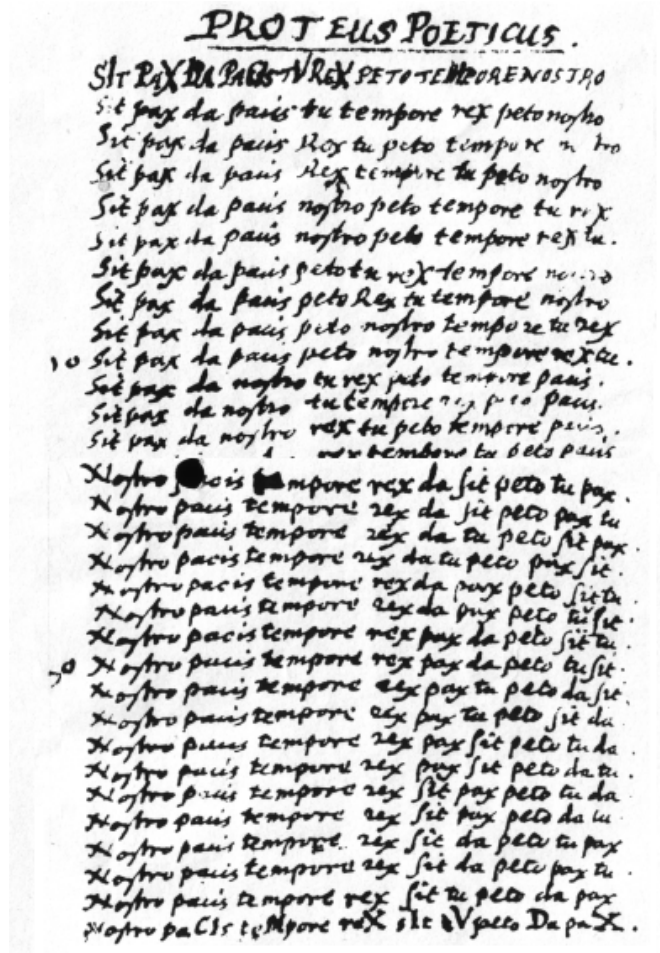 PROTEUS POETICUS.
SIt PaX Da PaCIs tV ReX PETO TEMPORE NOSTRO
Sit pax da pacis tu tempore rex peto nostro
Sit pax da pacis Rex tu peto tempore
Sit pax da pacis Rex tempore tu peto nostro
Sit pax da pacis nostro peto tempore tu rex
Sit pax da pacis nostro peto tempore rex tu.
Sit pax da pacis peto tu rex tempore
Sit pax da pacis peto Rex tu tempore nostro
Sit pax da pacis peto nostro tempore tu rex
10 Sit pax da pacis peto nostro tempore rex tu.
Sit pax da nostro tu rex peto tempore pacis.
Sit pax da nostro tu tempore rex peto pacis.
Sit pax da nostro rex tu peto tempore pacis.
rex tempore tu peto pacis
Nostro tempore rex da sit peto tu pax.
Nostro pacis tempore rex da sit peto pax tu
Nostro pacis tempore rex da tu peto sit pax.
Nostro pacis tempore rex da tu peto pax sit.
Nostro pacis tempore rex da pax peto sit tu
Nostro pacis tempore rex da pax peto tu sit.
Nostro pacis tempore rex pax da peto sit tu.
Nostro pacis tempore rex pax da peto tu sit.
Nostro pacis tempore rex pax tu peto da sit
Nostro pacis tempore rex pax tu peto sit da.
Nostro pacis tempore rex pax sit peto tu da
Nostro pacis tempore rex pax sit peto da tu.
Nostro pacis tempore rex sit pax peto tu da
Nostro pacis tempore rex sit pax peto da tu.
Nostro pacis tempore rex sit da peto tu pax
Nostro pacis tempore rex sit da peto pax tu.
Nostro pacis tempore rex sit tu peto da pax
Nostro paCIs teMpore reX sIt tV peto Da paX.